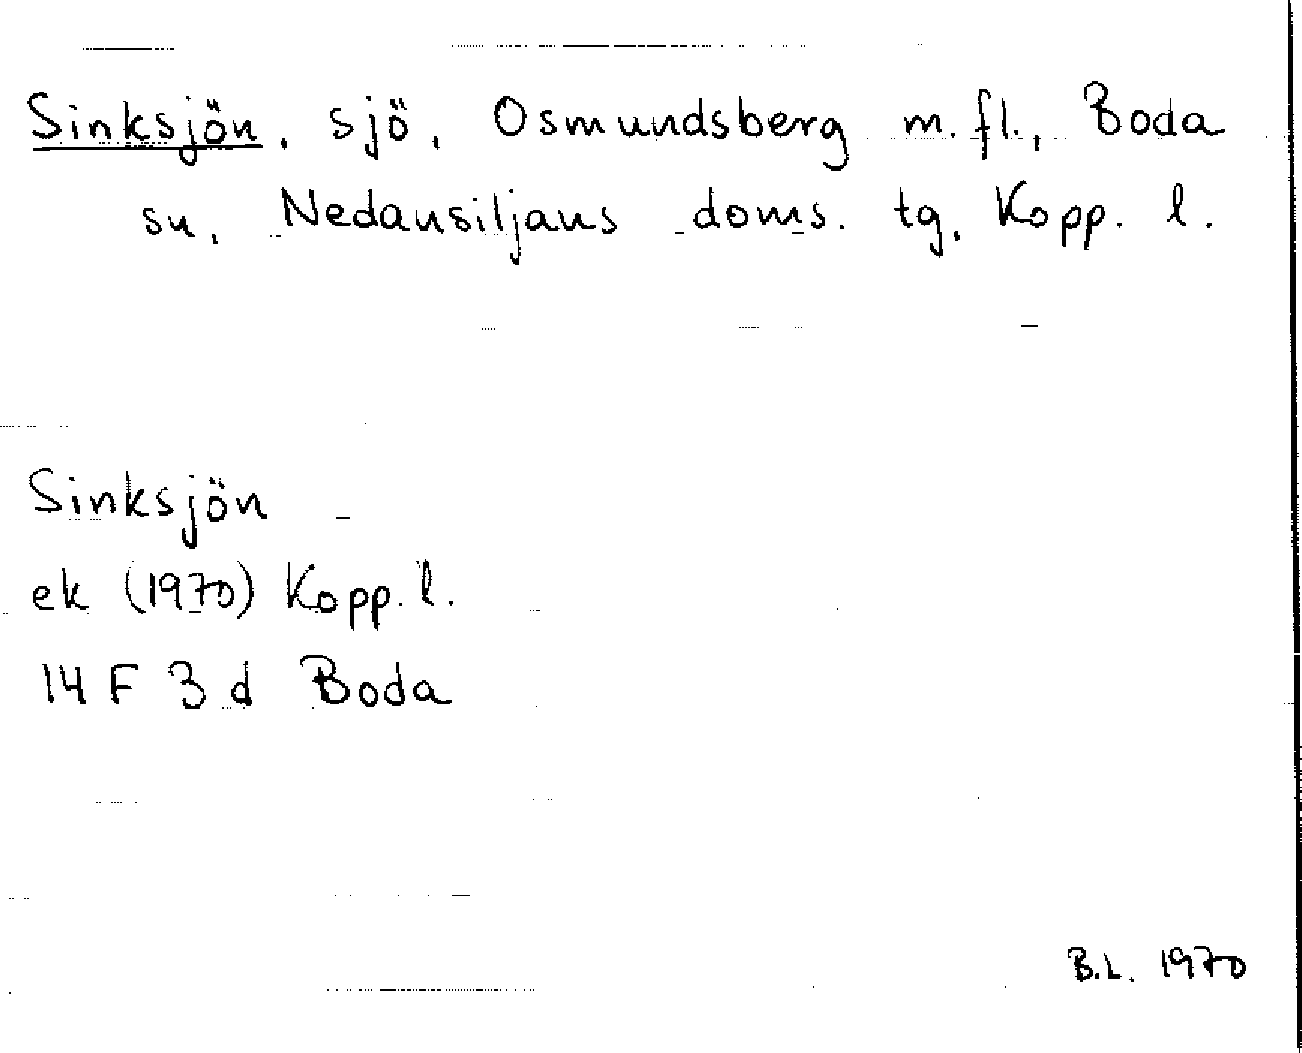 Sinksjön, sjö, Osmundsberg m.fl., Boda
sn, Nedansiljans doms. tg, Kopp. l.
Sinksjön
ek (1970) Kopp. l.
14 F 3 d Boda
B.L. 1970